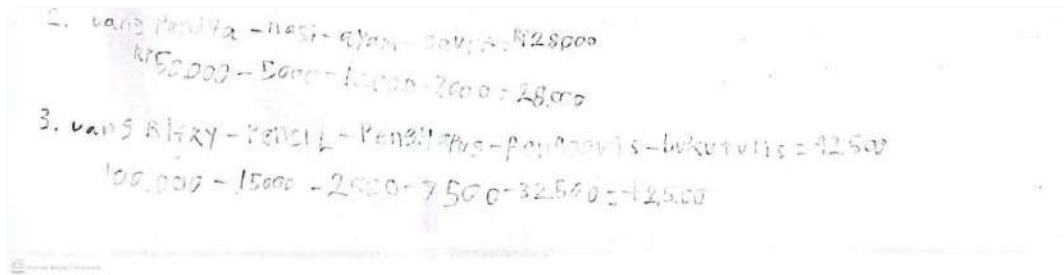 2. uang - nasi - ayam - sayur = Rp28000
Rp50.000 - 5000 - - 2000 = 28.000
3. uang Rizky - Pensil - Penghapus - Penggaris - buku tulis = 42.500
100.000 - 15000 - 2000 - 7500 - 32.500 = 42.500